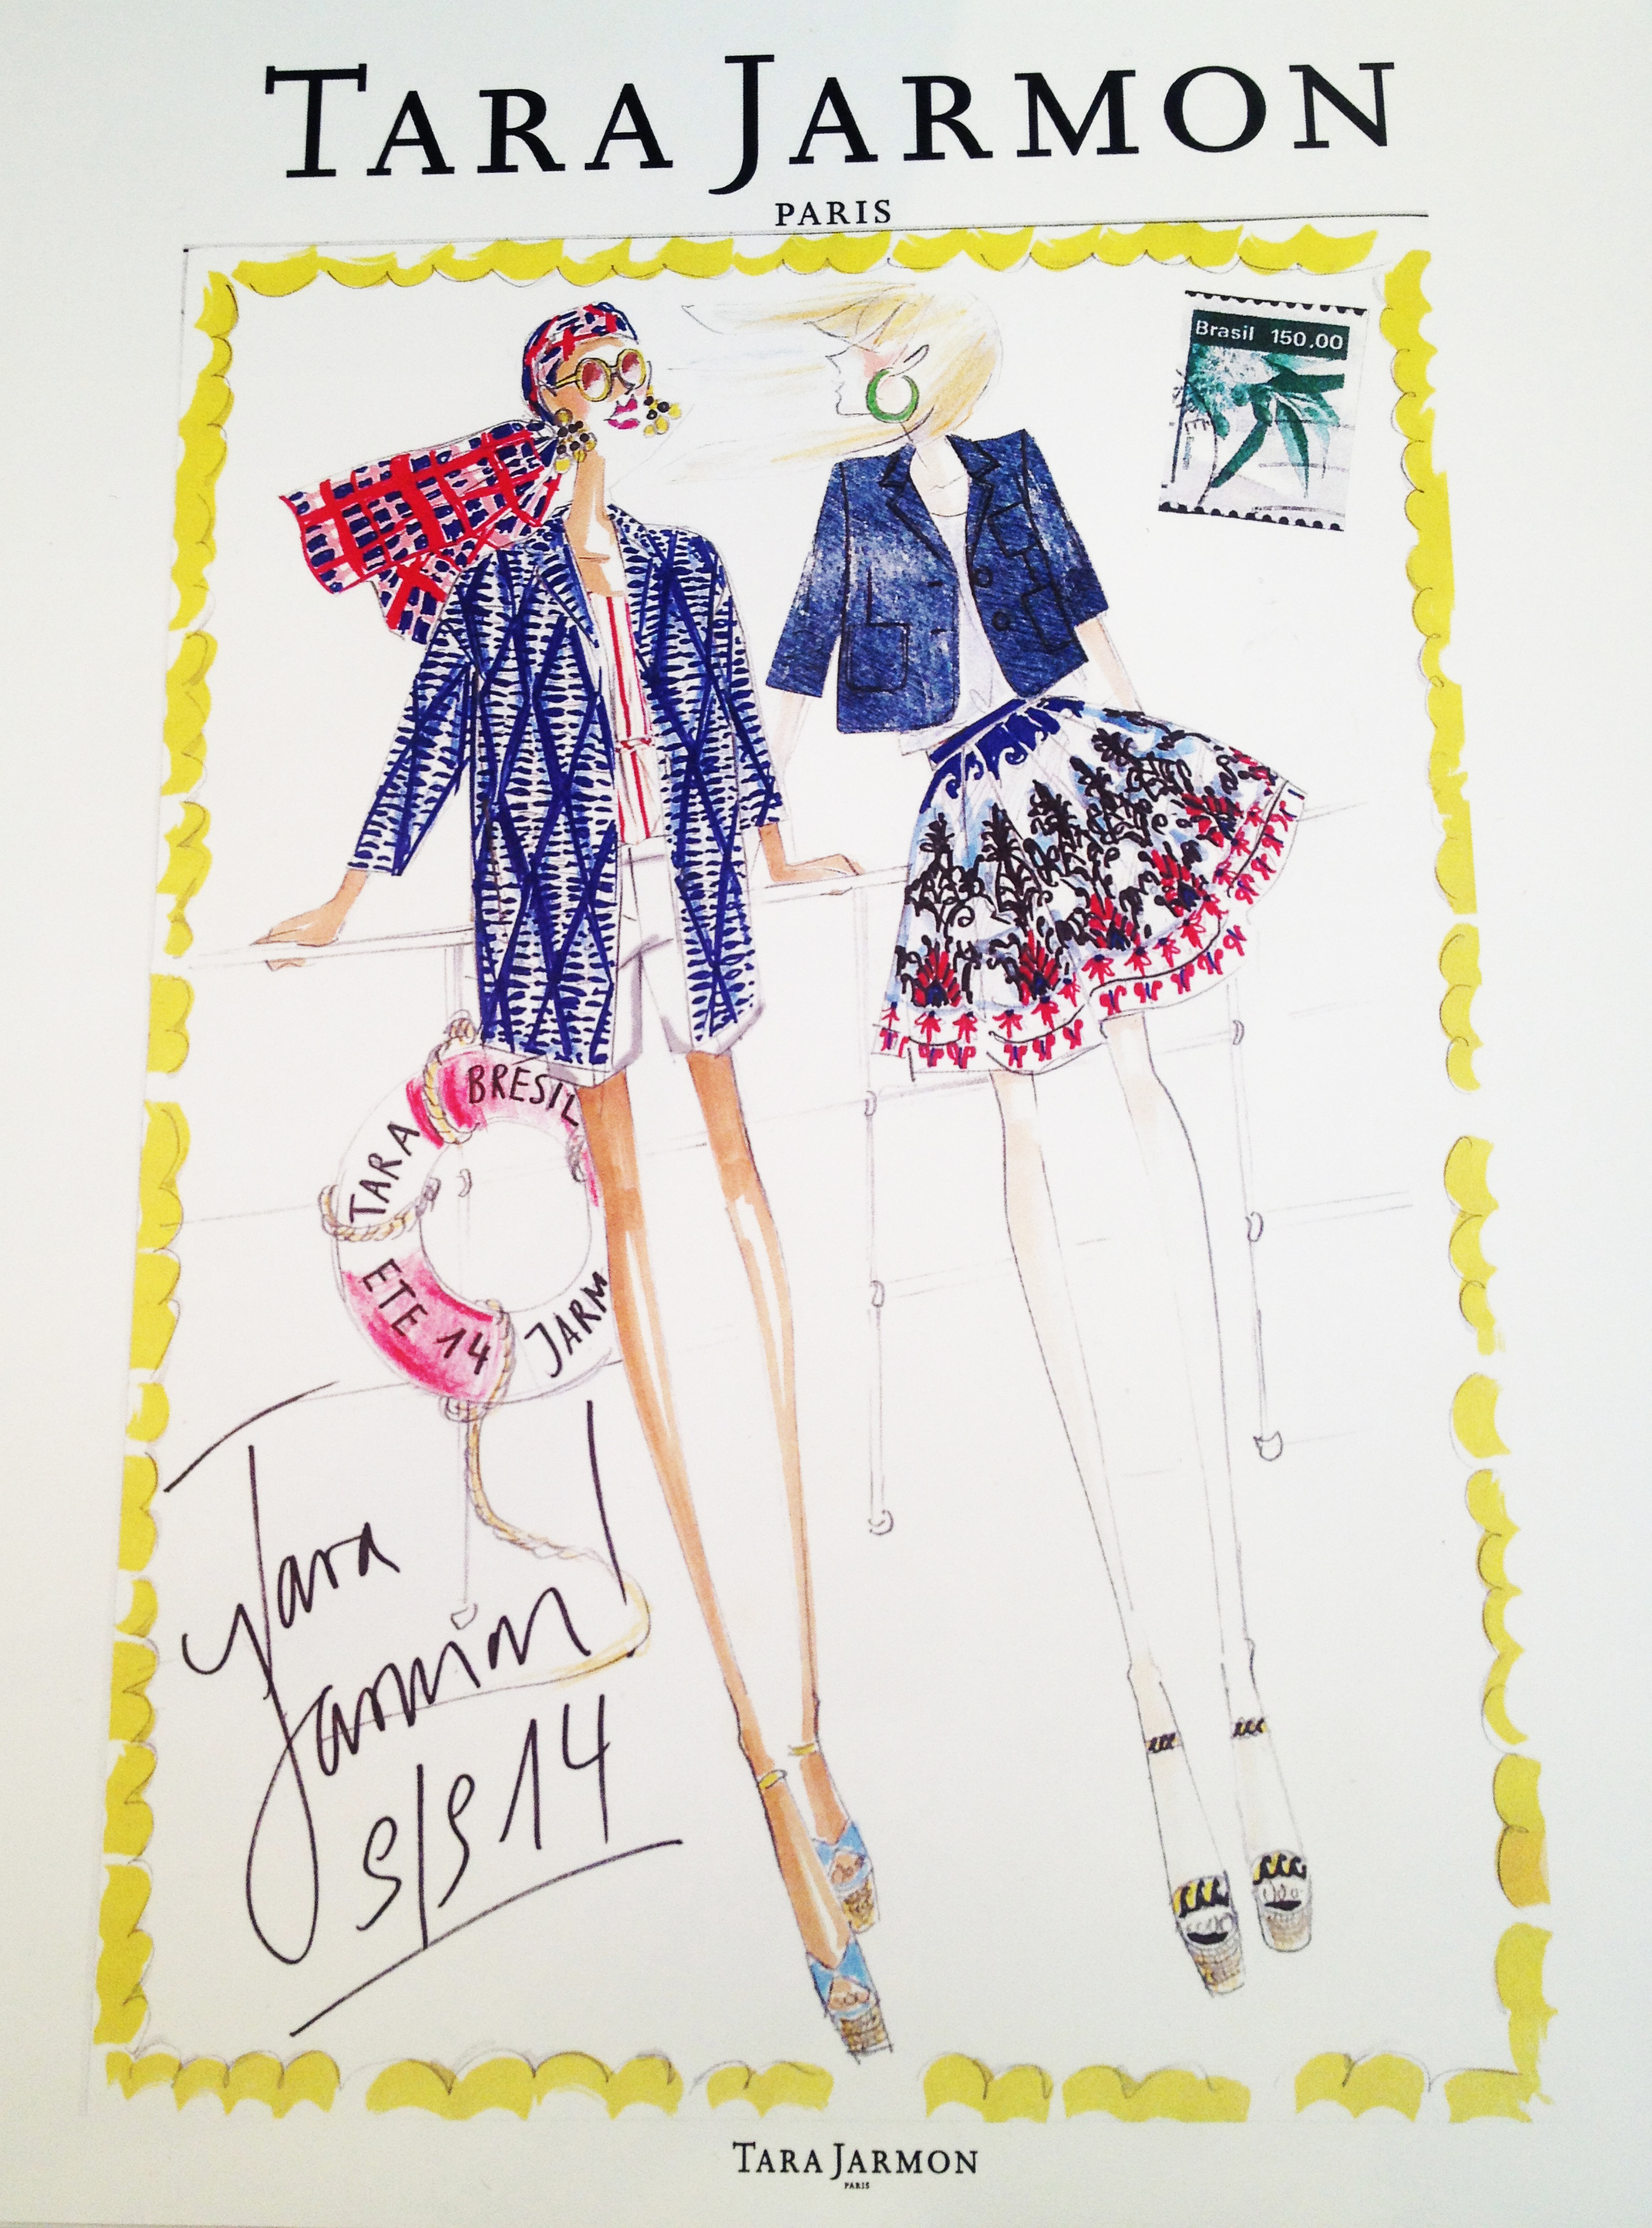 TARA JARMON
PARIS
Brasil 150.00
BRESIL
TARA
ETE 14
JARM
Tara
Jarmon
S/S 14
TARA JARMON
PARIS